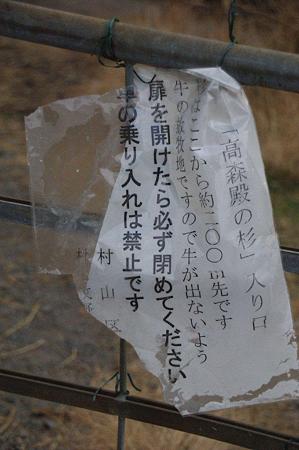 「高森殿の杉」入り口
杉はここから約二〇〇m先です
牛の放牧地ですので牛が出ないよう
扉を開けたら必ず閉めてください
車の乗り入れは禁止です
村山区